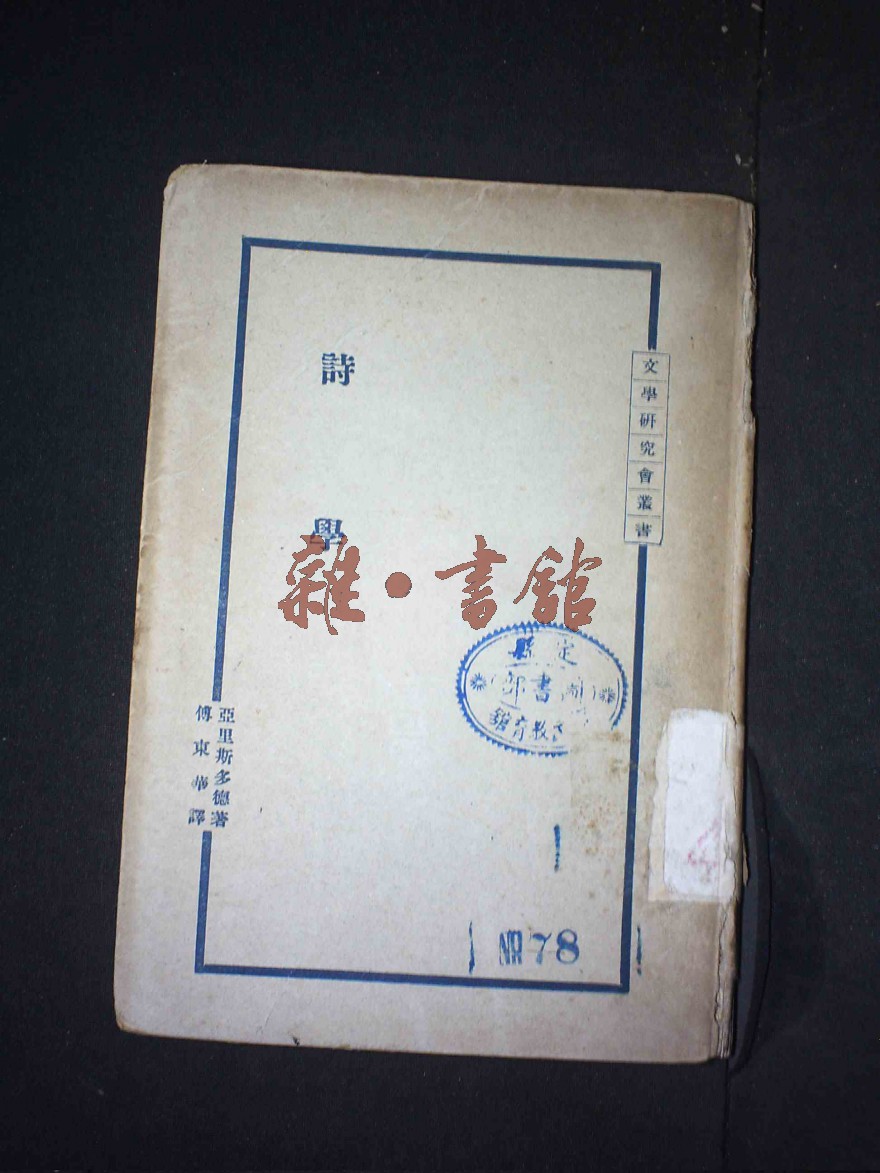 文學研究會叢書
詩學
亞里斯多德著
傅東華譯
雜·書館
定縣
圖書部
教育館
78